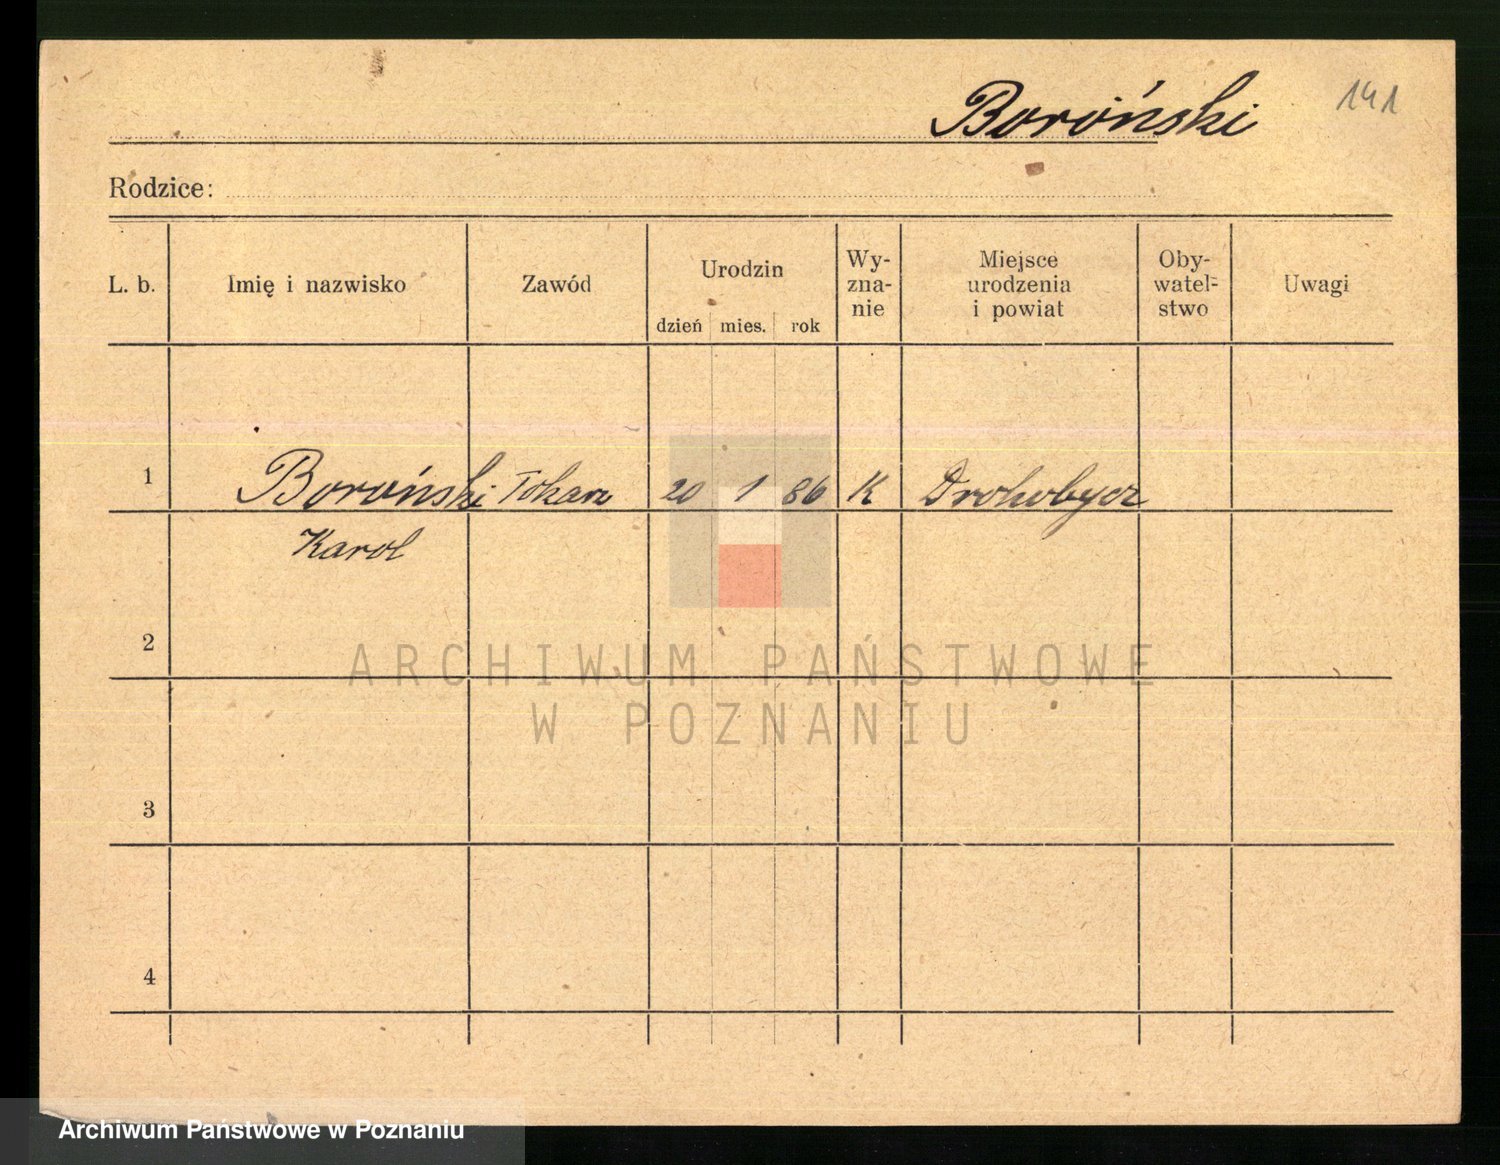 Boroński
141
Rodzice:
L. b.
Imię i nazwisko
Zawód
Urodzin
dzień
mies.
rok
Wy-
zna-
nie
Miejsce
urodzenia
i powiat
Oby-
watel-
stwo
Uwagi
1
Boroński
Tokarz
20
1
86
K
Drohobycz
Karol
2
3
4
ARCHIWUM PAŃSTWOWE
W POZNANIU
Archiwum Państwowe w Poznaniu